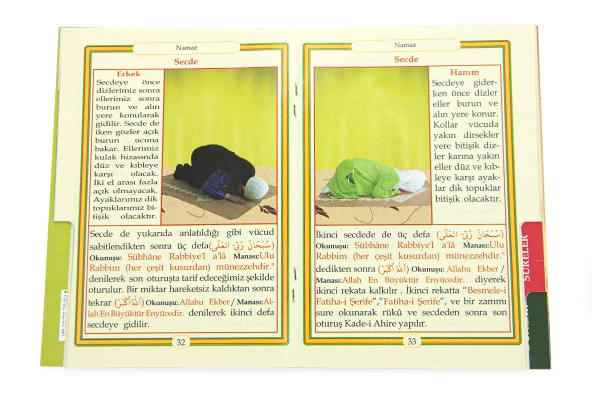 Namaz
Secde
Erkek
Secdeye önce
dizlerimiz sonra
ellerimiz sonra
burun ve alın
yere konularak
gidilir. Secde de
iken gözler açık
burun ucuna
bakar. Ellerimiz
kulak hizasında
düz ve kıbleye
karşı olacak.
İki el arası fazla
açık olmayacak.
Ayaklarımız dik
topuklarımız bi-
tişik olacaktır.
Secde de yukarıda anlatıldığı gibi vücud
sabitlendikten sonra üç defa(سُبْحَانَ رَبِّيَ اْلعَلَى)
Okunuşu: Sübhâne Rabbiye'l a'lâ Manası:Ulu
Rabbim (her çeşit kusurdan) münezzehdir."
denilerek son oturuşta tarif edeceğimiz şekilde
oturulur. Bir miktar hareketsiz kaldıktan sonra
tekrar (اَللهُ اَكْبَرُ) Okunuşu: Allahu Ekber / Manası:Al-
lah En Büyüktür Enyücedir. denilerek ikinci defa
secdeye gidilir.
32
Namaz
Secde
Hanım
Secdeye gider-
ken önce dizler
eller burun ve
alın yere konur.
Kollar vücuda
yakın dirsekler
yere bitişik diz-
ler karına yakın
eller düz ve kıb-
leye karşı ayak-
lar dik topuklar
bitişik olacaktır.
İkinci secdede de üç defa (سُبْحَانَ رَبِّيَ اْلعَلَى)
Okunuşu: Sübhâne Rabbiye'l a'lâ Manası:Ulu
Rabbim (her çeşit kusurdan) münezzehdir."
dedikten sonra (اَللهُ اَكْبَرُ) Okunuşu: Allahu Ekber /
Manası:Allah En Büyüktür Enyücedir. diyerek
ikinci rekata kalkılır . İkinci rekatta "Besmele-i
Fatiha-i Şerife","Fatiha-i Şerife", ve bir zammı
sure okunarak rükû ve secdeden sonra son
oturuş Kade-i Ahire yapılır.
33
SURELER